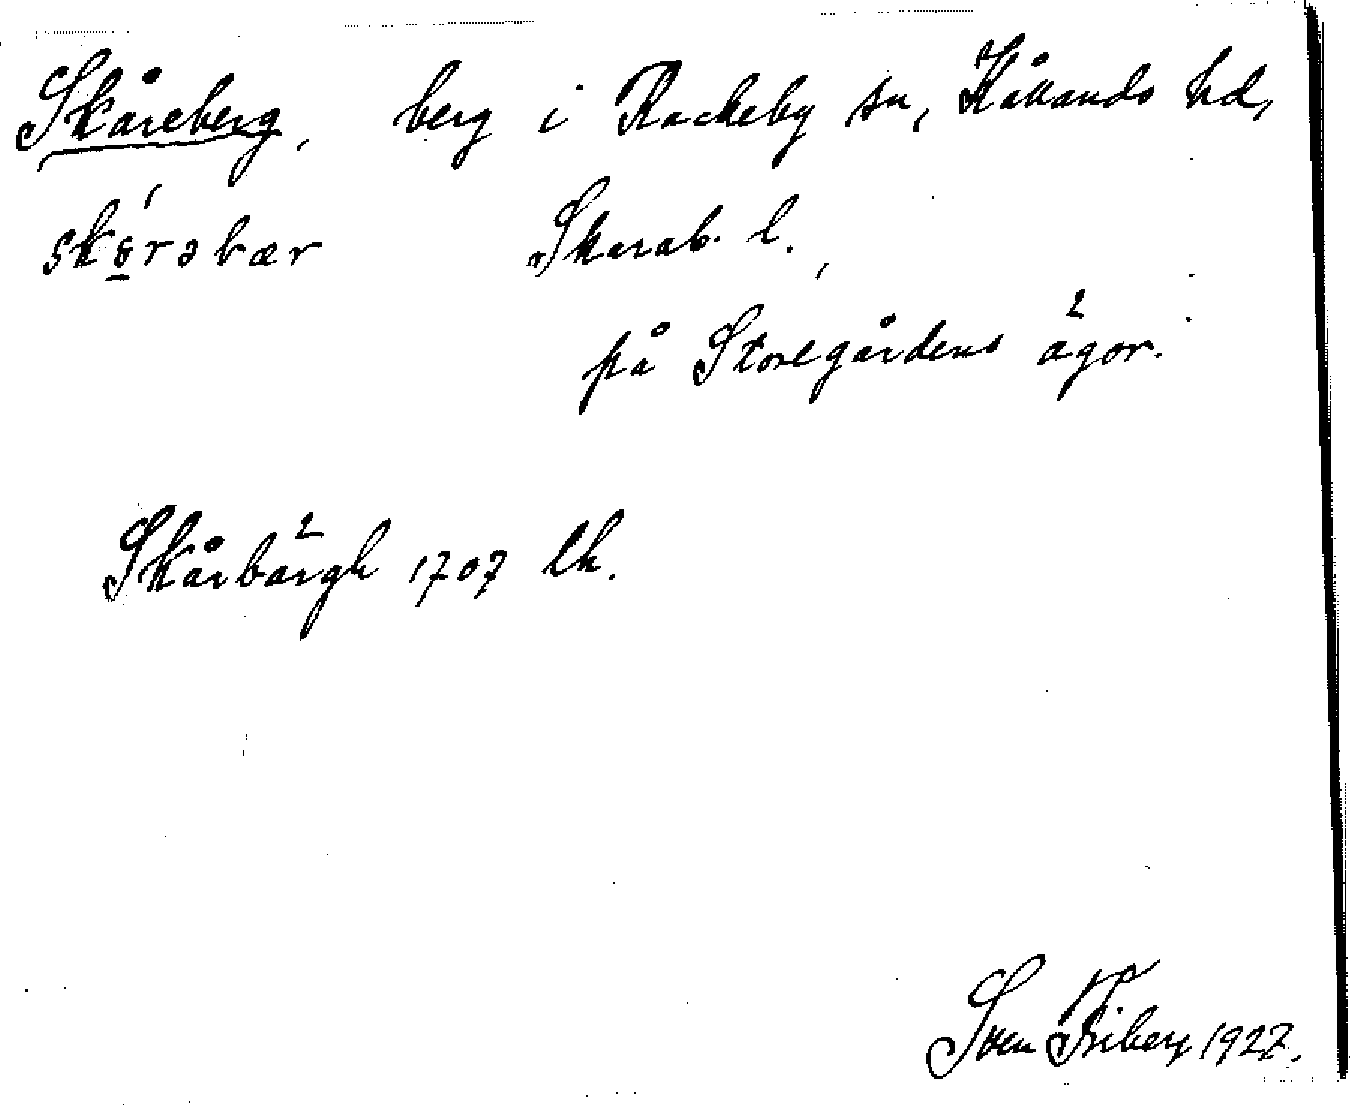 Skåreberg, berg i Rackeby sn, Kållands hd,
skɵ́rəbær Skarab. l.
på Storegårdens ägor.
Skårbärgh 1707 lk.
Sven Friberg 1927.